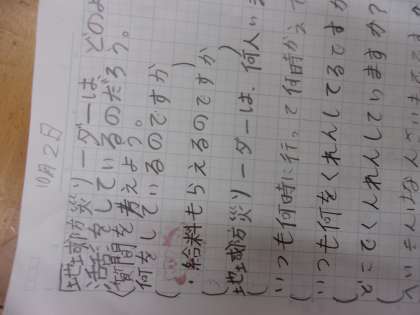 10月2日
地域防災リーダーは どのよ
活動をしているのだろう。
(質問を考えよう。
何をしているのですか
(
・給料もらえるのですか
地域防災リーダーは、何人い
(いつも何時に行って何時がえ
(いつも何をくれんしてるですか
(どこでくんれんしていますか?